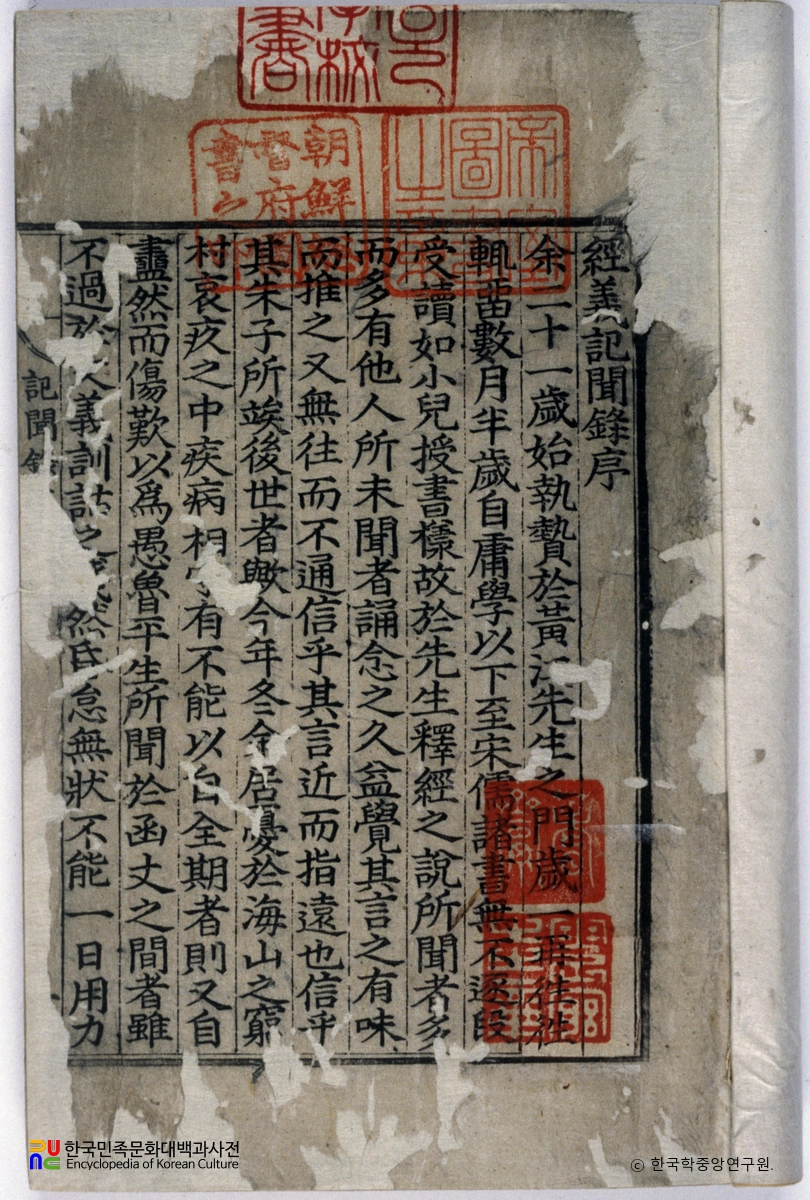 帝室圖書之章
朝鮮督府書
經義記聞錄序
余二十一歲始執贄於黃江先生之門歲一再往往
輒留數月半歲自庸學以下至宋儒諸書無不逐段
受讀如小兒授書樣故於先生釋經之說所聞者多
而多有他人所未聞者誦念之久益覺其言之有味
而推之又無往而不通信乎其言近而指遠也信乎
其朱子所竢後世者歟今年冬余居憂於海山之窮
村哀疚之中疾病相守有不能以自全期者則又自
衋然而傷歎以爲愚魯平生所聞於函丈之間者雖
不過於文義訓詁之然昏怠無狀不能一日用力
記聞錄
한국민족문화대백과사전
Encyclopedia of Korean Culture
ⓒ 한국학중앙연구원.